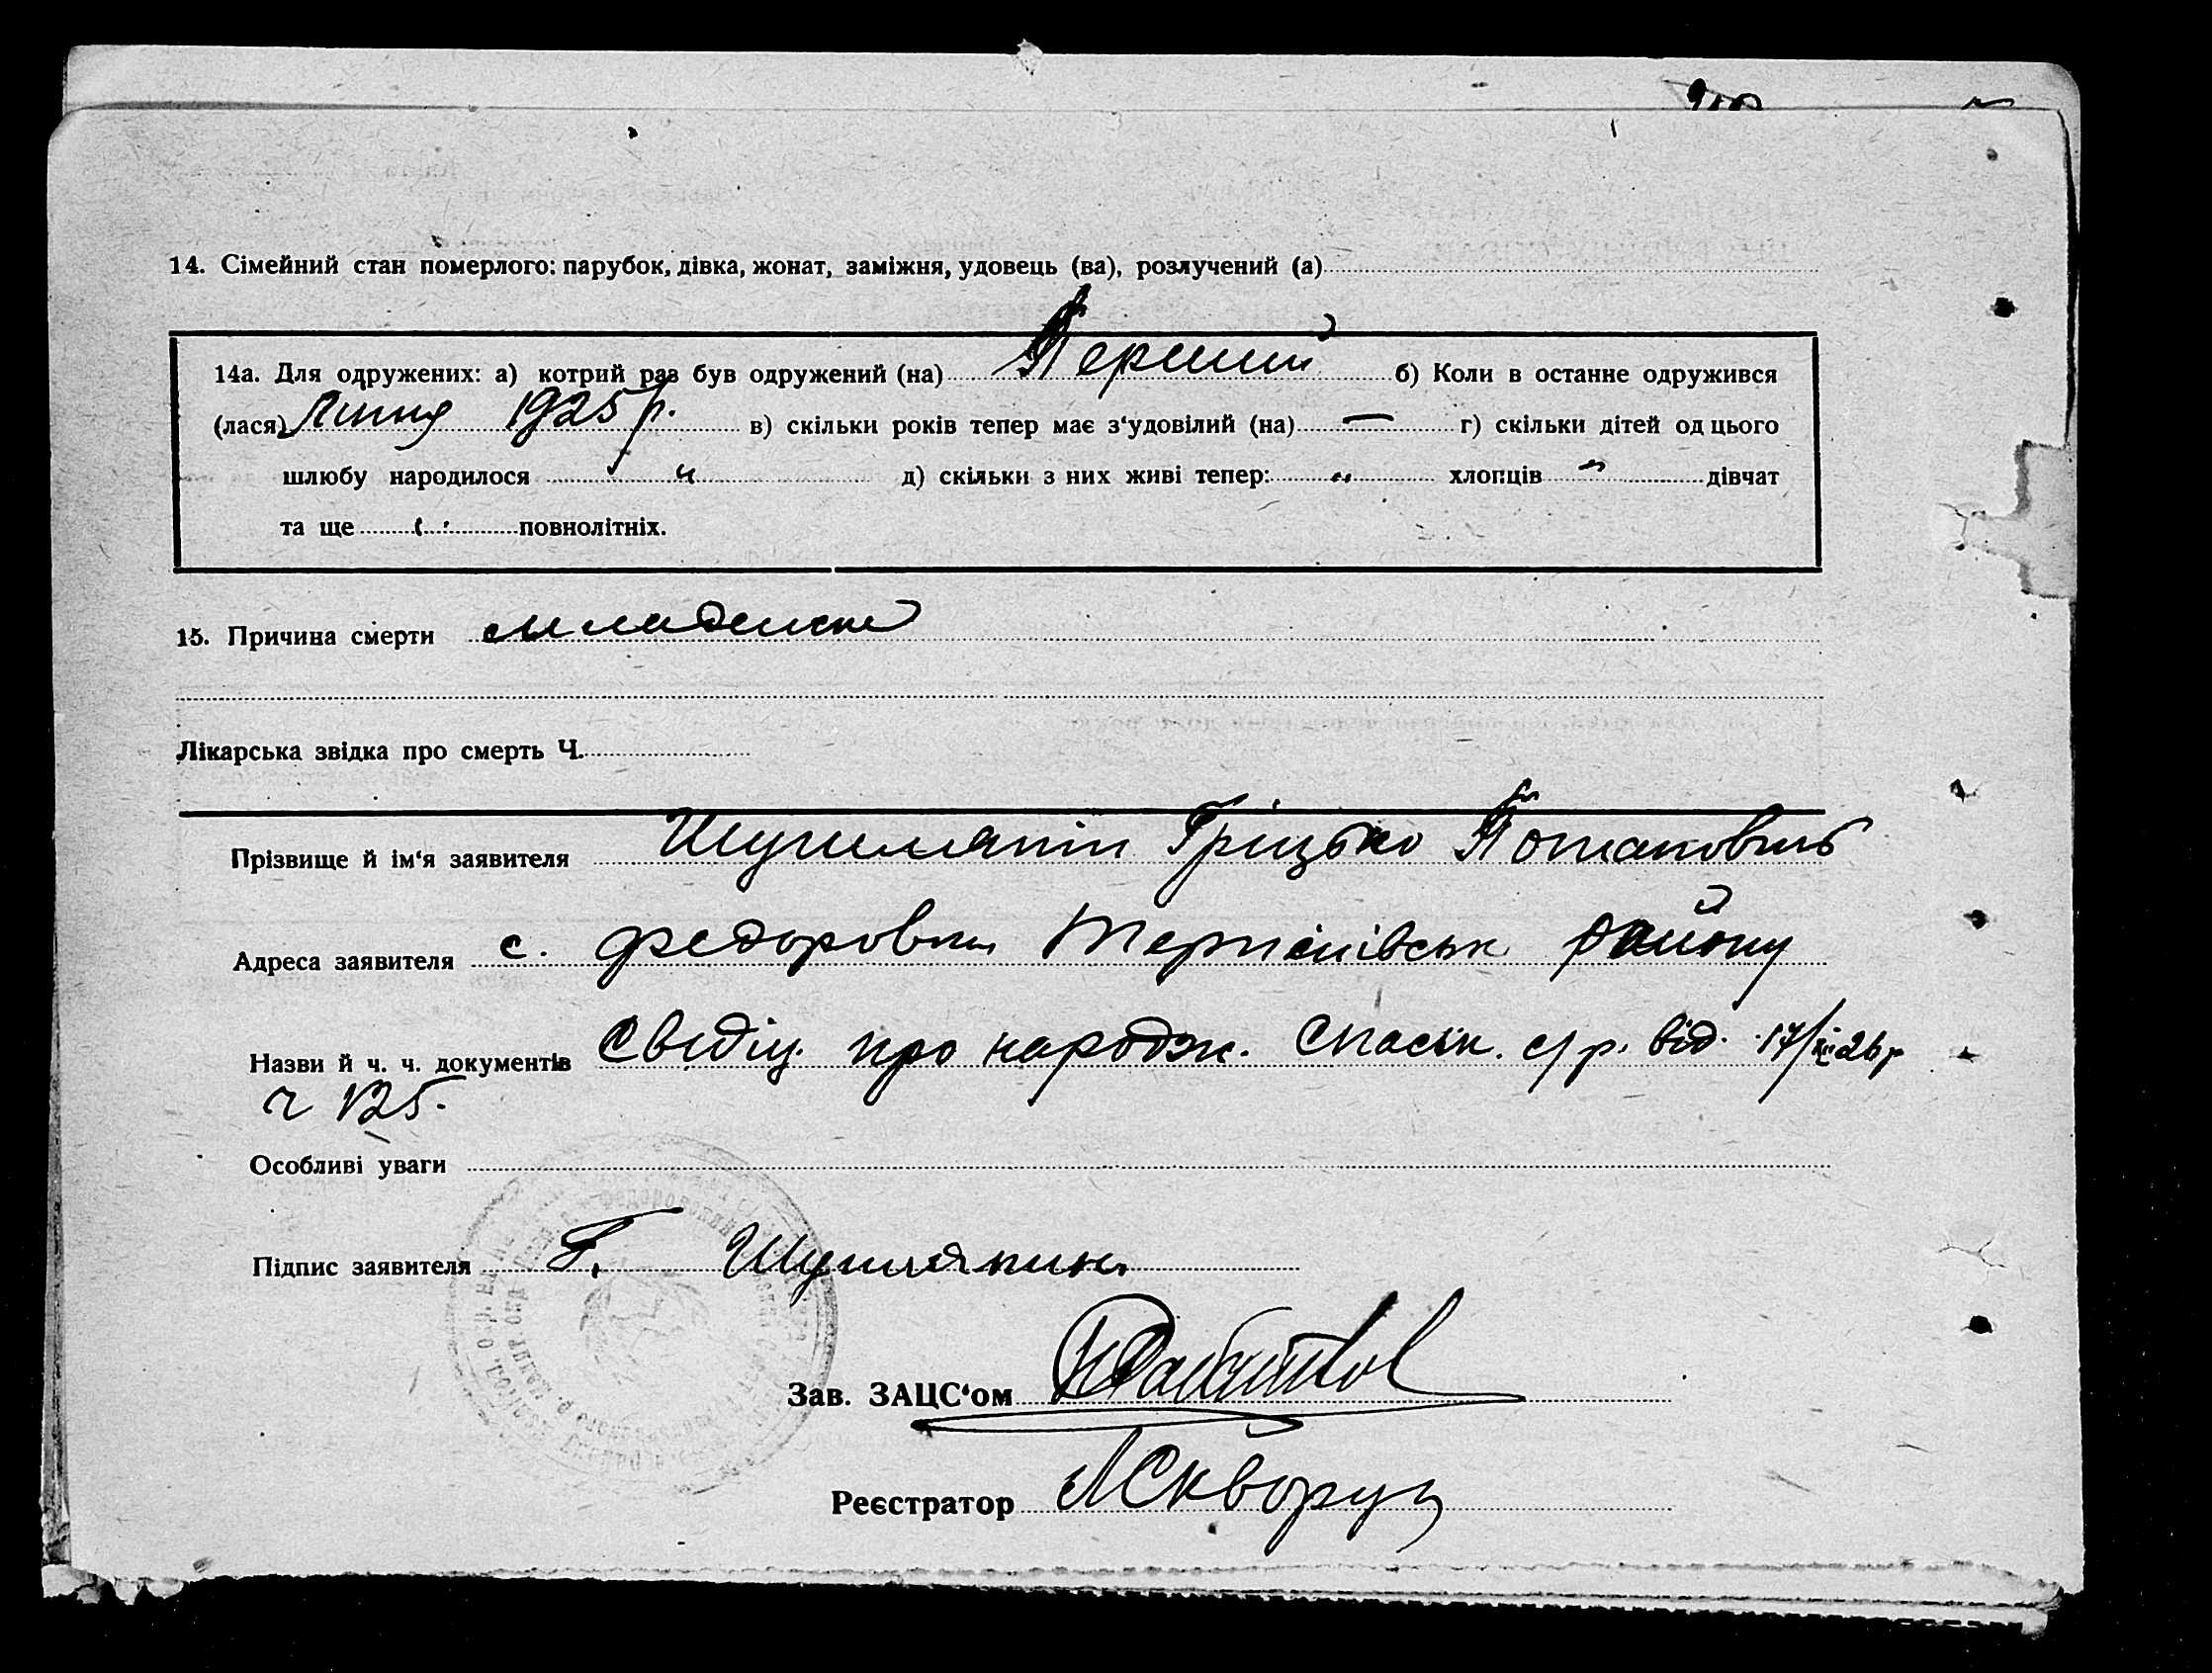 14. Сімейний стан померлого: парубок, дівка, жонат, заміжня, удовець (ва), розлучений (а)
14а. Для одружених: а) котрий раз був одружений (на) Перший б) Коли в останне одружився
(лася) Липня 1925 р. в) скільки років тепер має з‘удовілий (на) — г) скільки дітей од цього
шлюбу народилося " д) скільки з них живі тепер: " хлопців " дівчат
та ще " повнолітніх.
15. Причина смерти младенск
Лікарська звідка про смерть Ч.
Прізвище й ім‘я заявителя Шушляпін Гріцько Потапович
Адреса заявителя с. Федоровки района
Назви й ч. ч. документів Свідіц. про народж. Спаськ. с/р. від. 17/ 26 р
ч 125.
Особливі уваги
Підпис заявителя Г. Шушляпин
Зав. ЗАЦС‘ом
Реєстратор